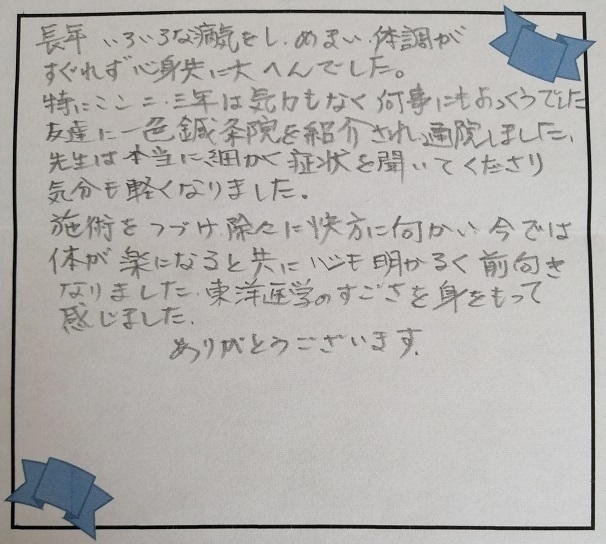 長年 いろいろな病気をし、めまい 体調が
すぐれず 心身共に大へんでした。
特にここ二・三年は気力もなく 何事にもおっくうでした
友達に一色鍼灸院を紹介され、通院しました、
先生は本当に細かく症状を聞いてくださり
気分も軽くなりました。
施術をつづけ 除々に快方に向かい 今では
体が楽になると共に 心も明かるく 前向き
なりました、東洋医学のすごさを身をもって
感じました、
ありがとうございます、